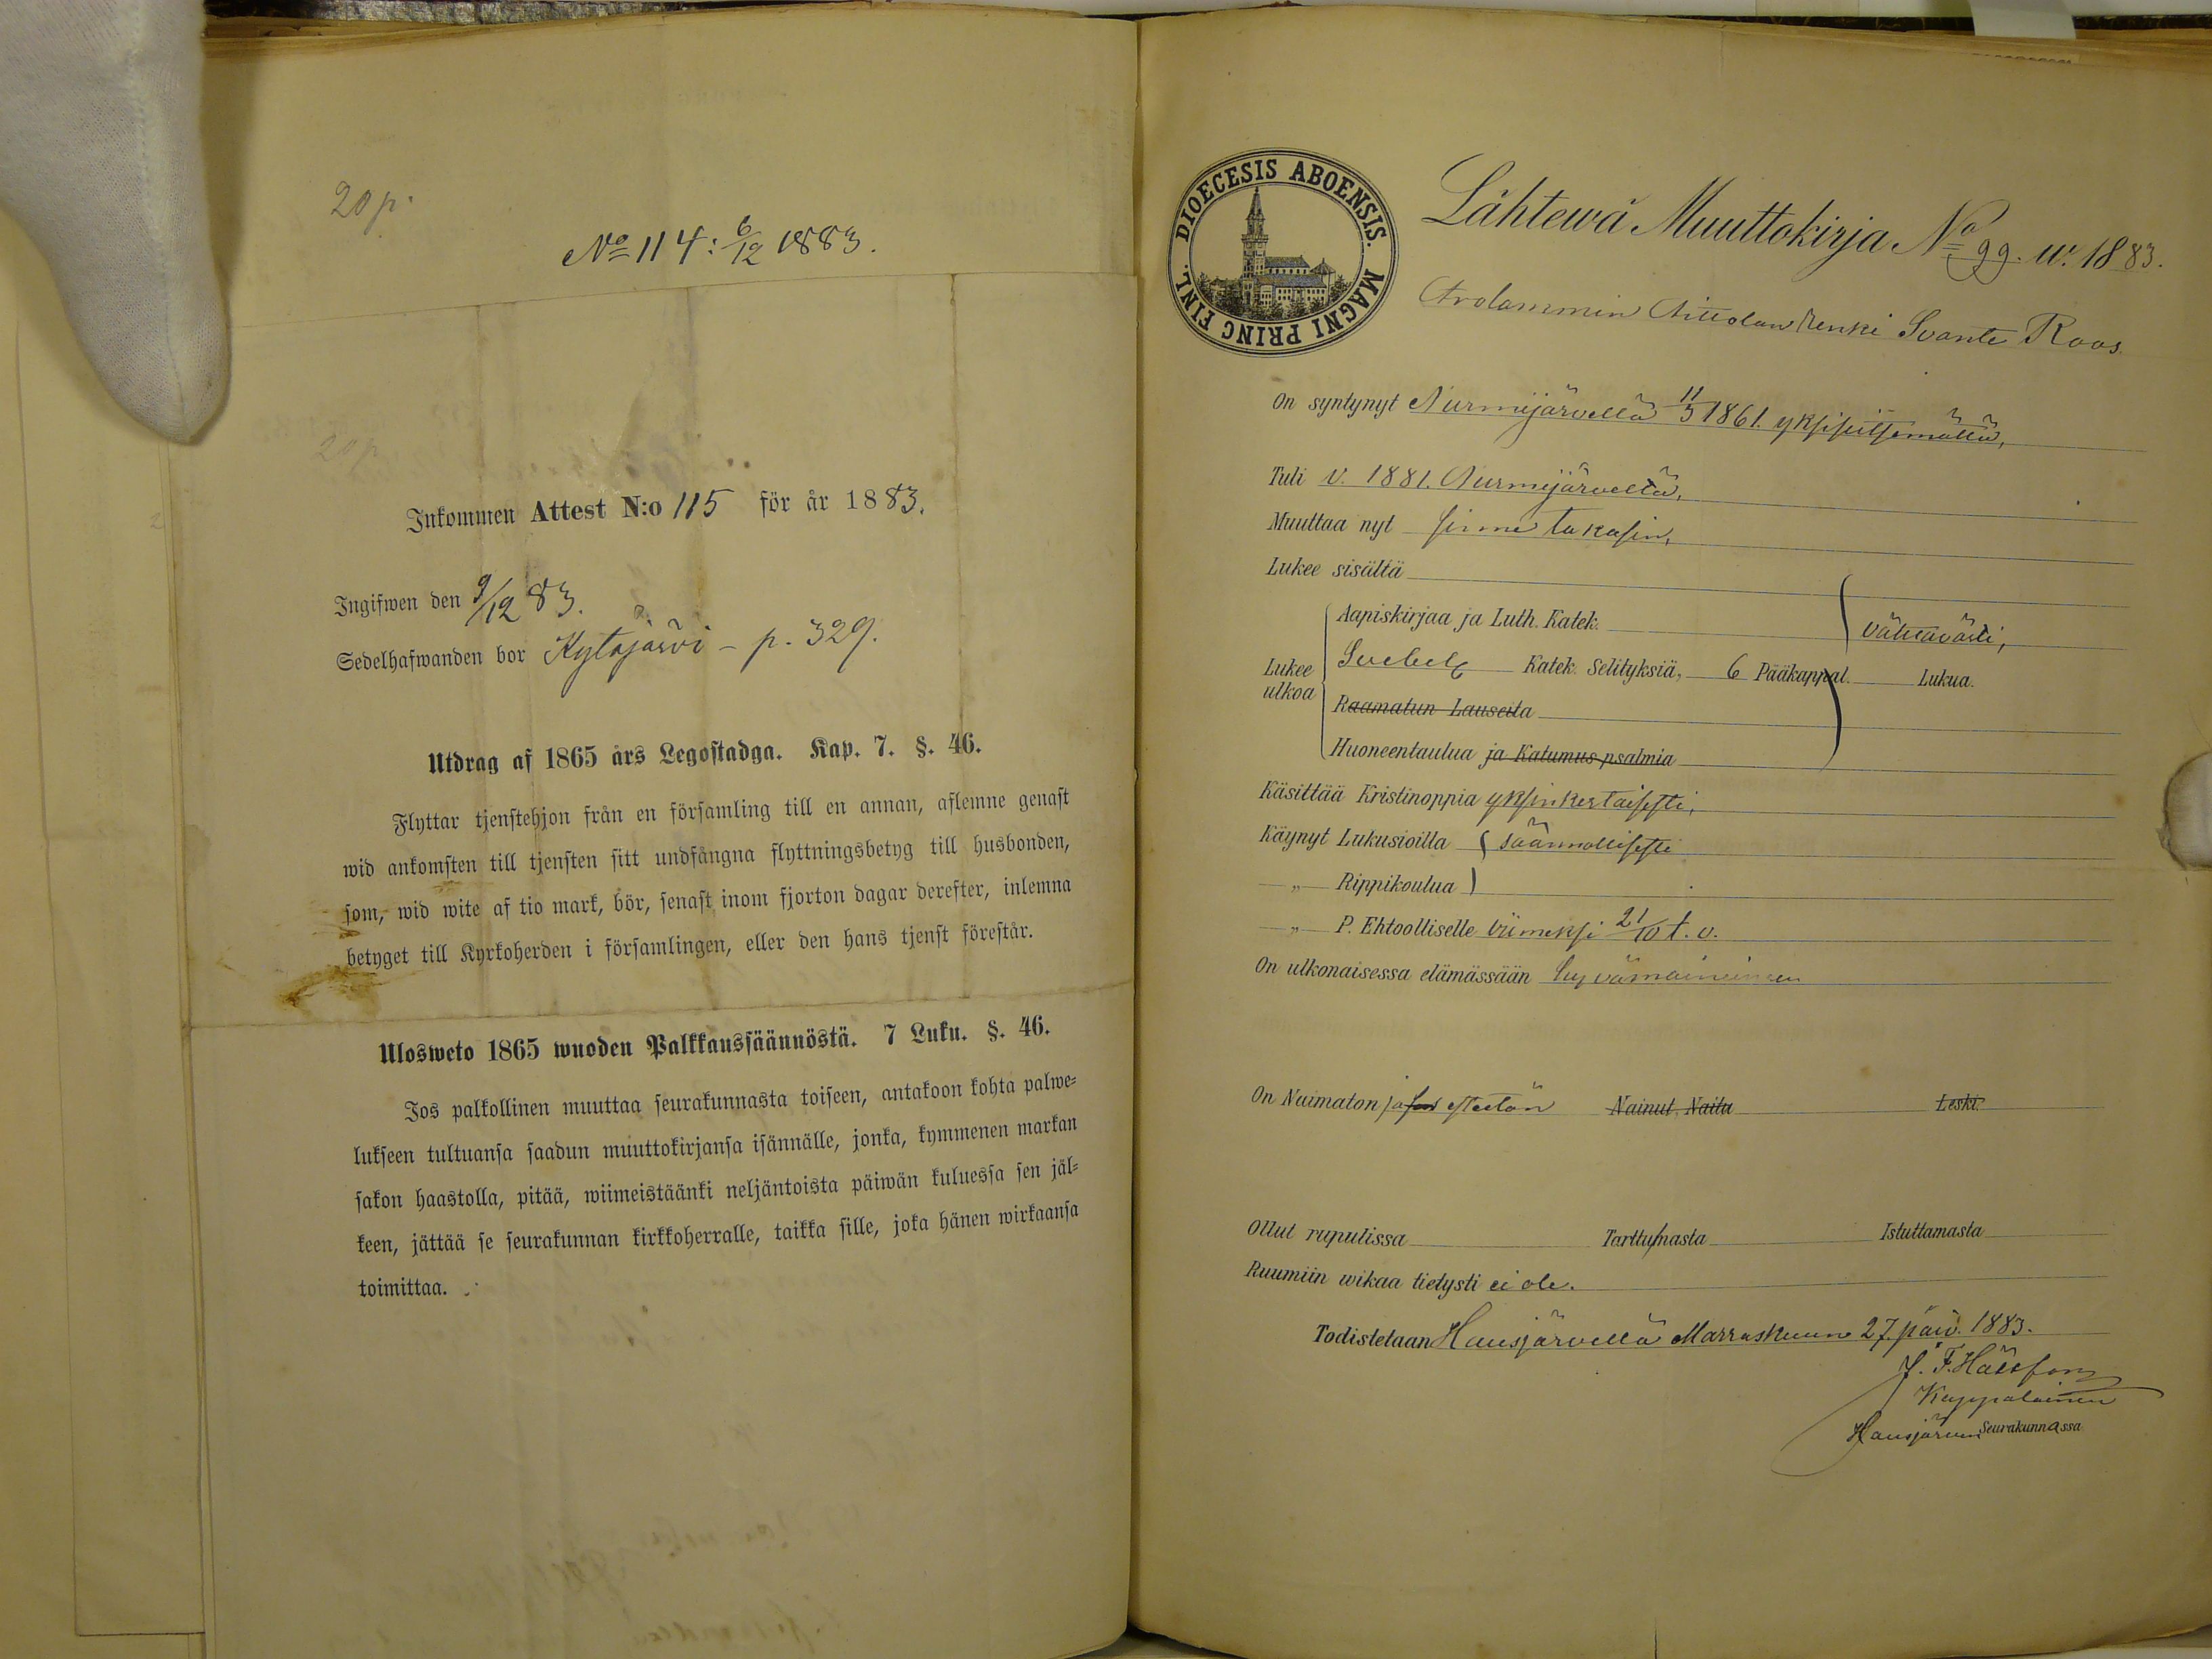 20 p.
No 114: 6/12 1883.
Inkommen Attest N:o 115 för år 1883.
Ingifwen den 9/12 83.
Sedelhafwanden bor Kytäjärvi - p. 329.
Utdrag af 1865 års Legostadga. Kap. 7. §. 46.
Flyttar tjenstehjon från en församling till en annan, aflemne genast
wid ankomsten till tjensten sitt undfångna flyttningsbetyg till husbonden,
som, wid wite af tio mark, bör, senast inom fjorton dagar derefter, inlemna
betyget till Kyrkoherden i församlingen, eller den hans tjenst förestår.
Ulosweto 1865 wuoden Palkkaussäännöstä. 7 Luku. §. 46.
Jos palkollinen muuttaa seurakunnasta toiseen, antakoon kohta palwe-
lukseen tultuansa saadun muuttokirjansa isännälle, jonka, kymmenen markan
sakon haastolla, pitää, wiimeistäänki neljäntoista päiwän kuluessa sen jäl-
keen, jättää se seurakunnan kirkkoherralle, taikka sille, joka hänen wirkaansa
toimittaa.
DIOECESIS ABOENSIS. MAGNI PRINC FINL.
Lähtewä Muuttokirja No 99. w. 1883.
Arolammin Aittolan Renki Svante Roos.
On syntynyt Nurmijärvellä 11/3 1861. yksiseitsemättä,
Tuli v. 1881. Nurmijärveltä,
Muuttaa nyt sinne takasin,
Lukee sisältä
Aapiskirjaa ja Luth. Katek. välttävästi,
Lukee ulkoa Svebel. Katek. Selityksiä, 6 Pääkappal. Lukua.
Raamatun Lauseita
Huoneentaulua ja Katumus psalmia
Käsittää Kristinoppia yksinkertaisesti,
Käynyt Lukusioilla säännöllisesti
„ Rippikoulua
„ P. Ehtoolliselle viimeksi 21/10 t. v.
On ulkonaisessa elämässään hyvämaineinen
On Naimaton ja esteetön Nainut, Naitu Leski.
Ollut rupulissa Tarttumasta Istuttamasta
Ruumiin wikaa tietysti ei ole.
Todistetaan Hausjärvellä Marraskuun 27. päiv. 1883.
Kappalainen
Hausjärven Seurakunnassa